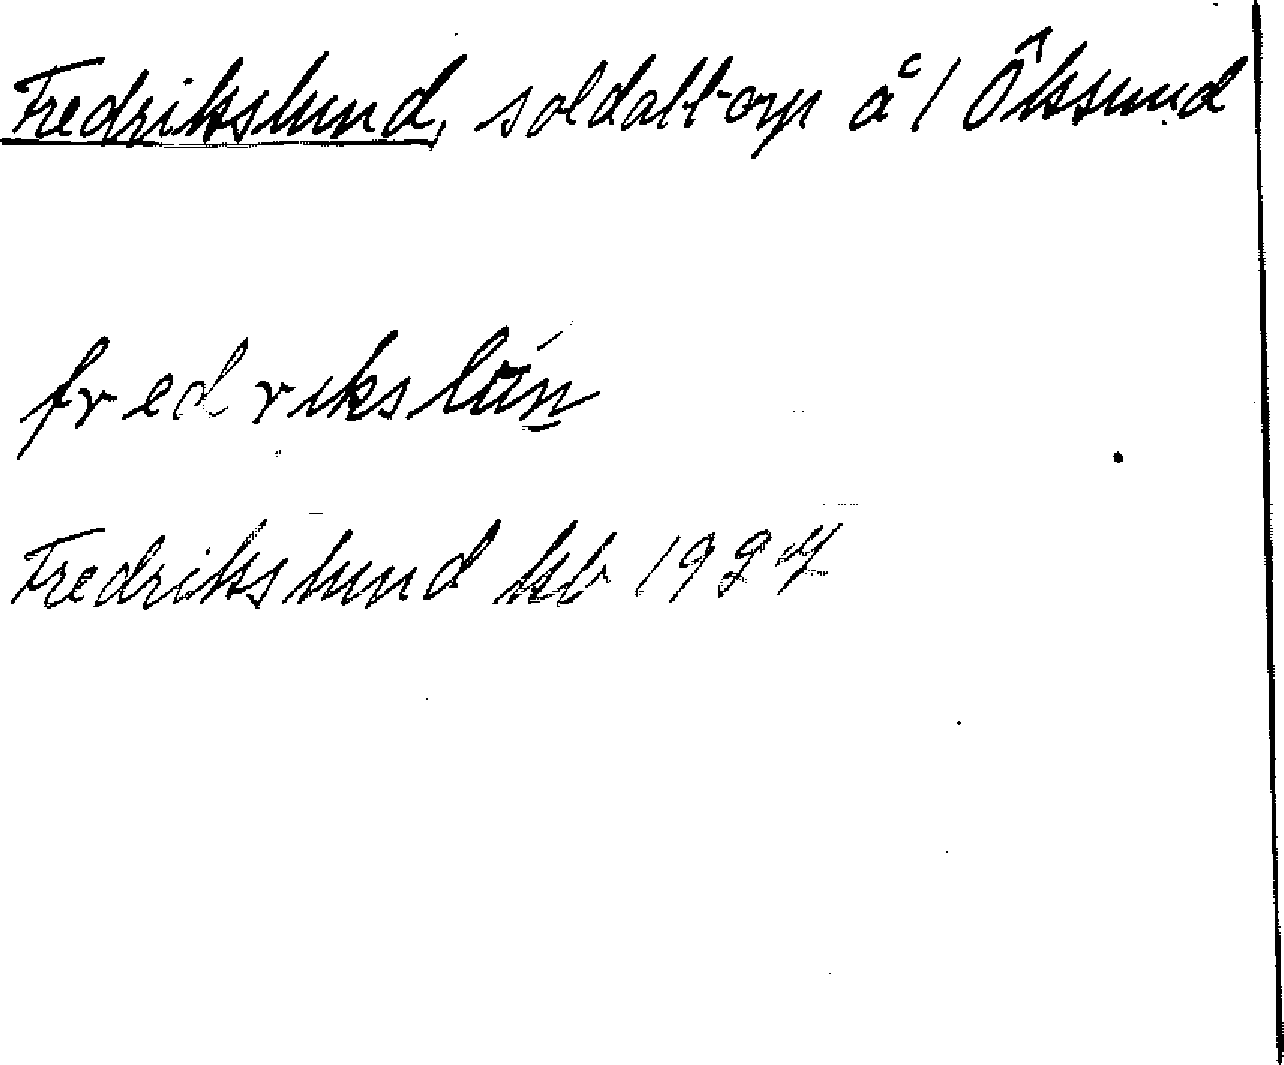 Fredrikslund, soldattorp å 1 Öksund
fredrikslún
Fredrikslund kb 1927